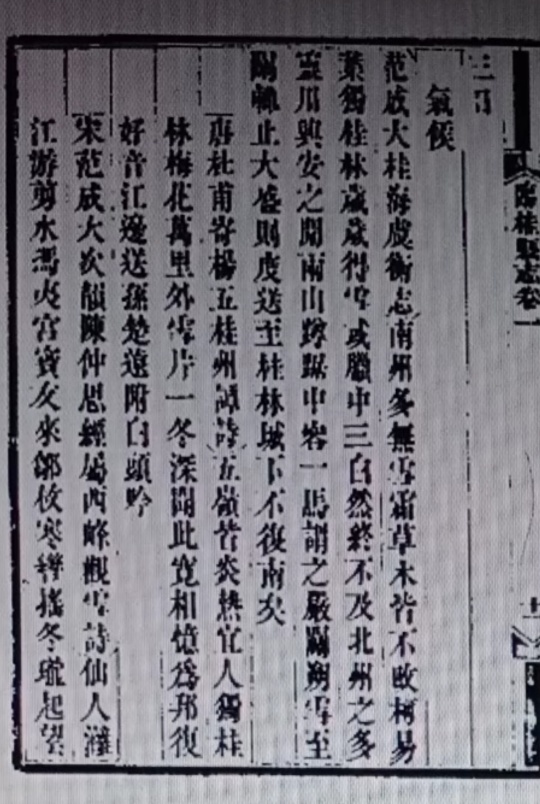 臨桂縣志卷一
氣候
范成大桂海虞衡志南州多無雪霜草木皆不改柯易
葉獨桂林歲歲得雪或臘中三白然終不及北州之多
靈川興安之間兩山蹲踞中容一馬謂之嚴關朔雪至
關輒止大盛則度送至桂林城下不復南矣
唐杜甫寄楊五桂州譚詩五嶺皆炎熱宜人獨桂
林梅花萬里外雪片一冬深聞此寬相憶為邦復
好音江邊送孫楚遠附白頭吟
宋范成大次韻陳仲思經屬西峰觀雪詩仙人灘
江游剪水馮夷宮賓友來鄒枚寒轡搖冬瓏起望